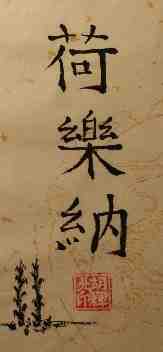 荷樂納